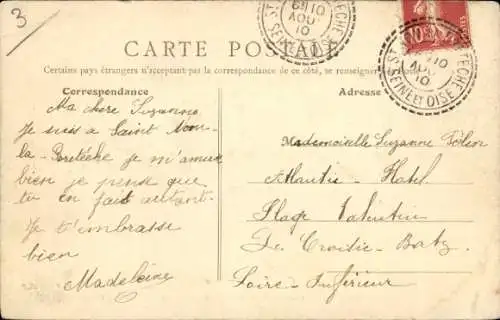 3
6 10
AOU
10
SEINE ET OISE
CARTE POSTALE
Certains pays étrangers n'acceptant pas la correspondance de ce côté, se renseigner
Correspondance
Adresse
10
AOU
10
SEINE ET OISE
Ma chère Suzanne
Je suis à Saint Nom-
la-Bretêche je m'amuse
bien je pense que
tu en fais autant.
Je t'embrasse
bien
Madeleine
Mademoiselle Suzanne
Atlantic-Hotel
Plage Valentin
Le Croisic-Batz
Loire-Inférieur